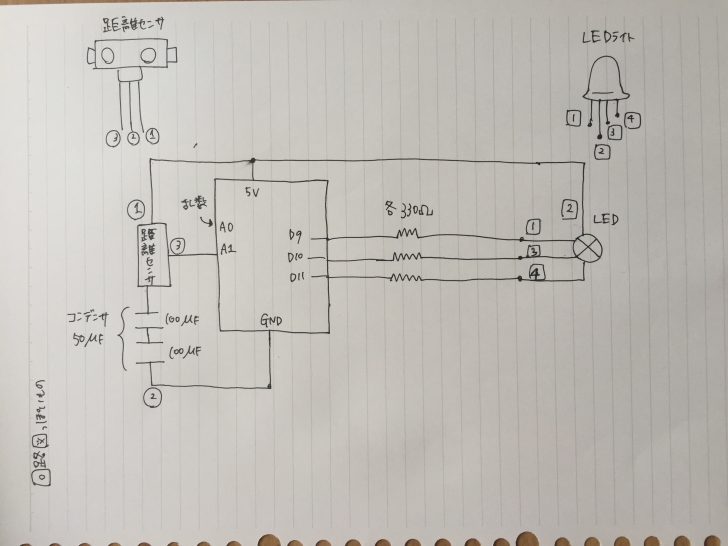 距離センサ
③ ② ①
LEDライト
1 2 3 4
5V
乱数
A0
A1
D9
D10
D11
GND
各330Ω
①
距離センサ
③
コンデンサ
50μF
100μF
100μF
②
2
LED
1
3
4
回路図っぽいもの